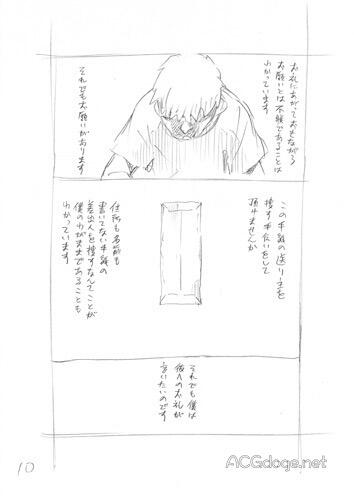 お礼にあがっておきながら
お願いとは不躾であることは
わかっています
それでもお願いがあります
この手紙の送り主を
捜す手伝いをして
頂けませんか
住所も名前も
書いてない手紙の
差出人を捜すなんてことが
僕のわがままであることも
わかっています
それでも僕は
彼へのお礼が
言いたいのです
10
ACGdoge.net